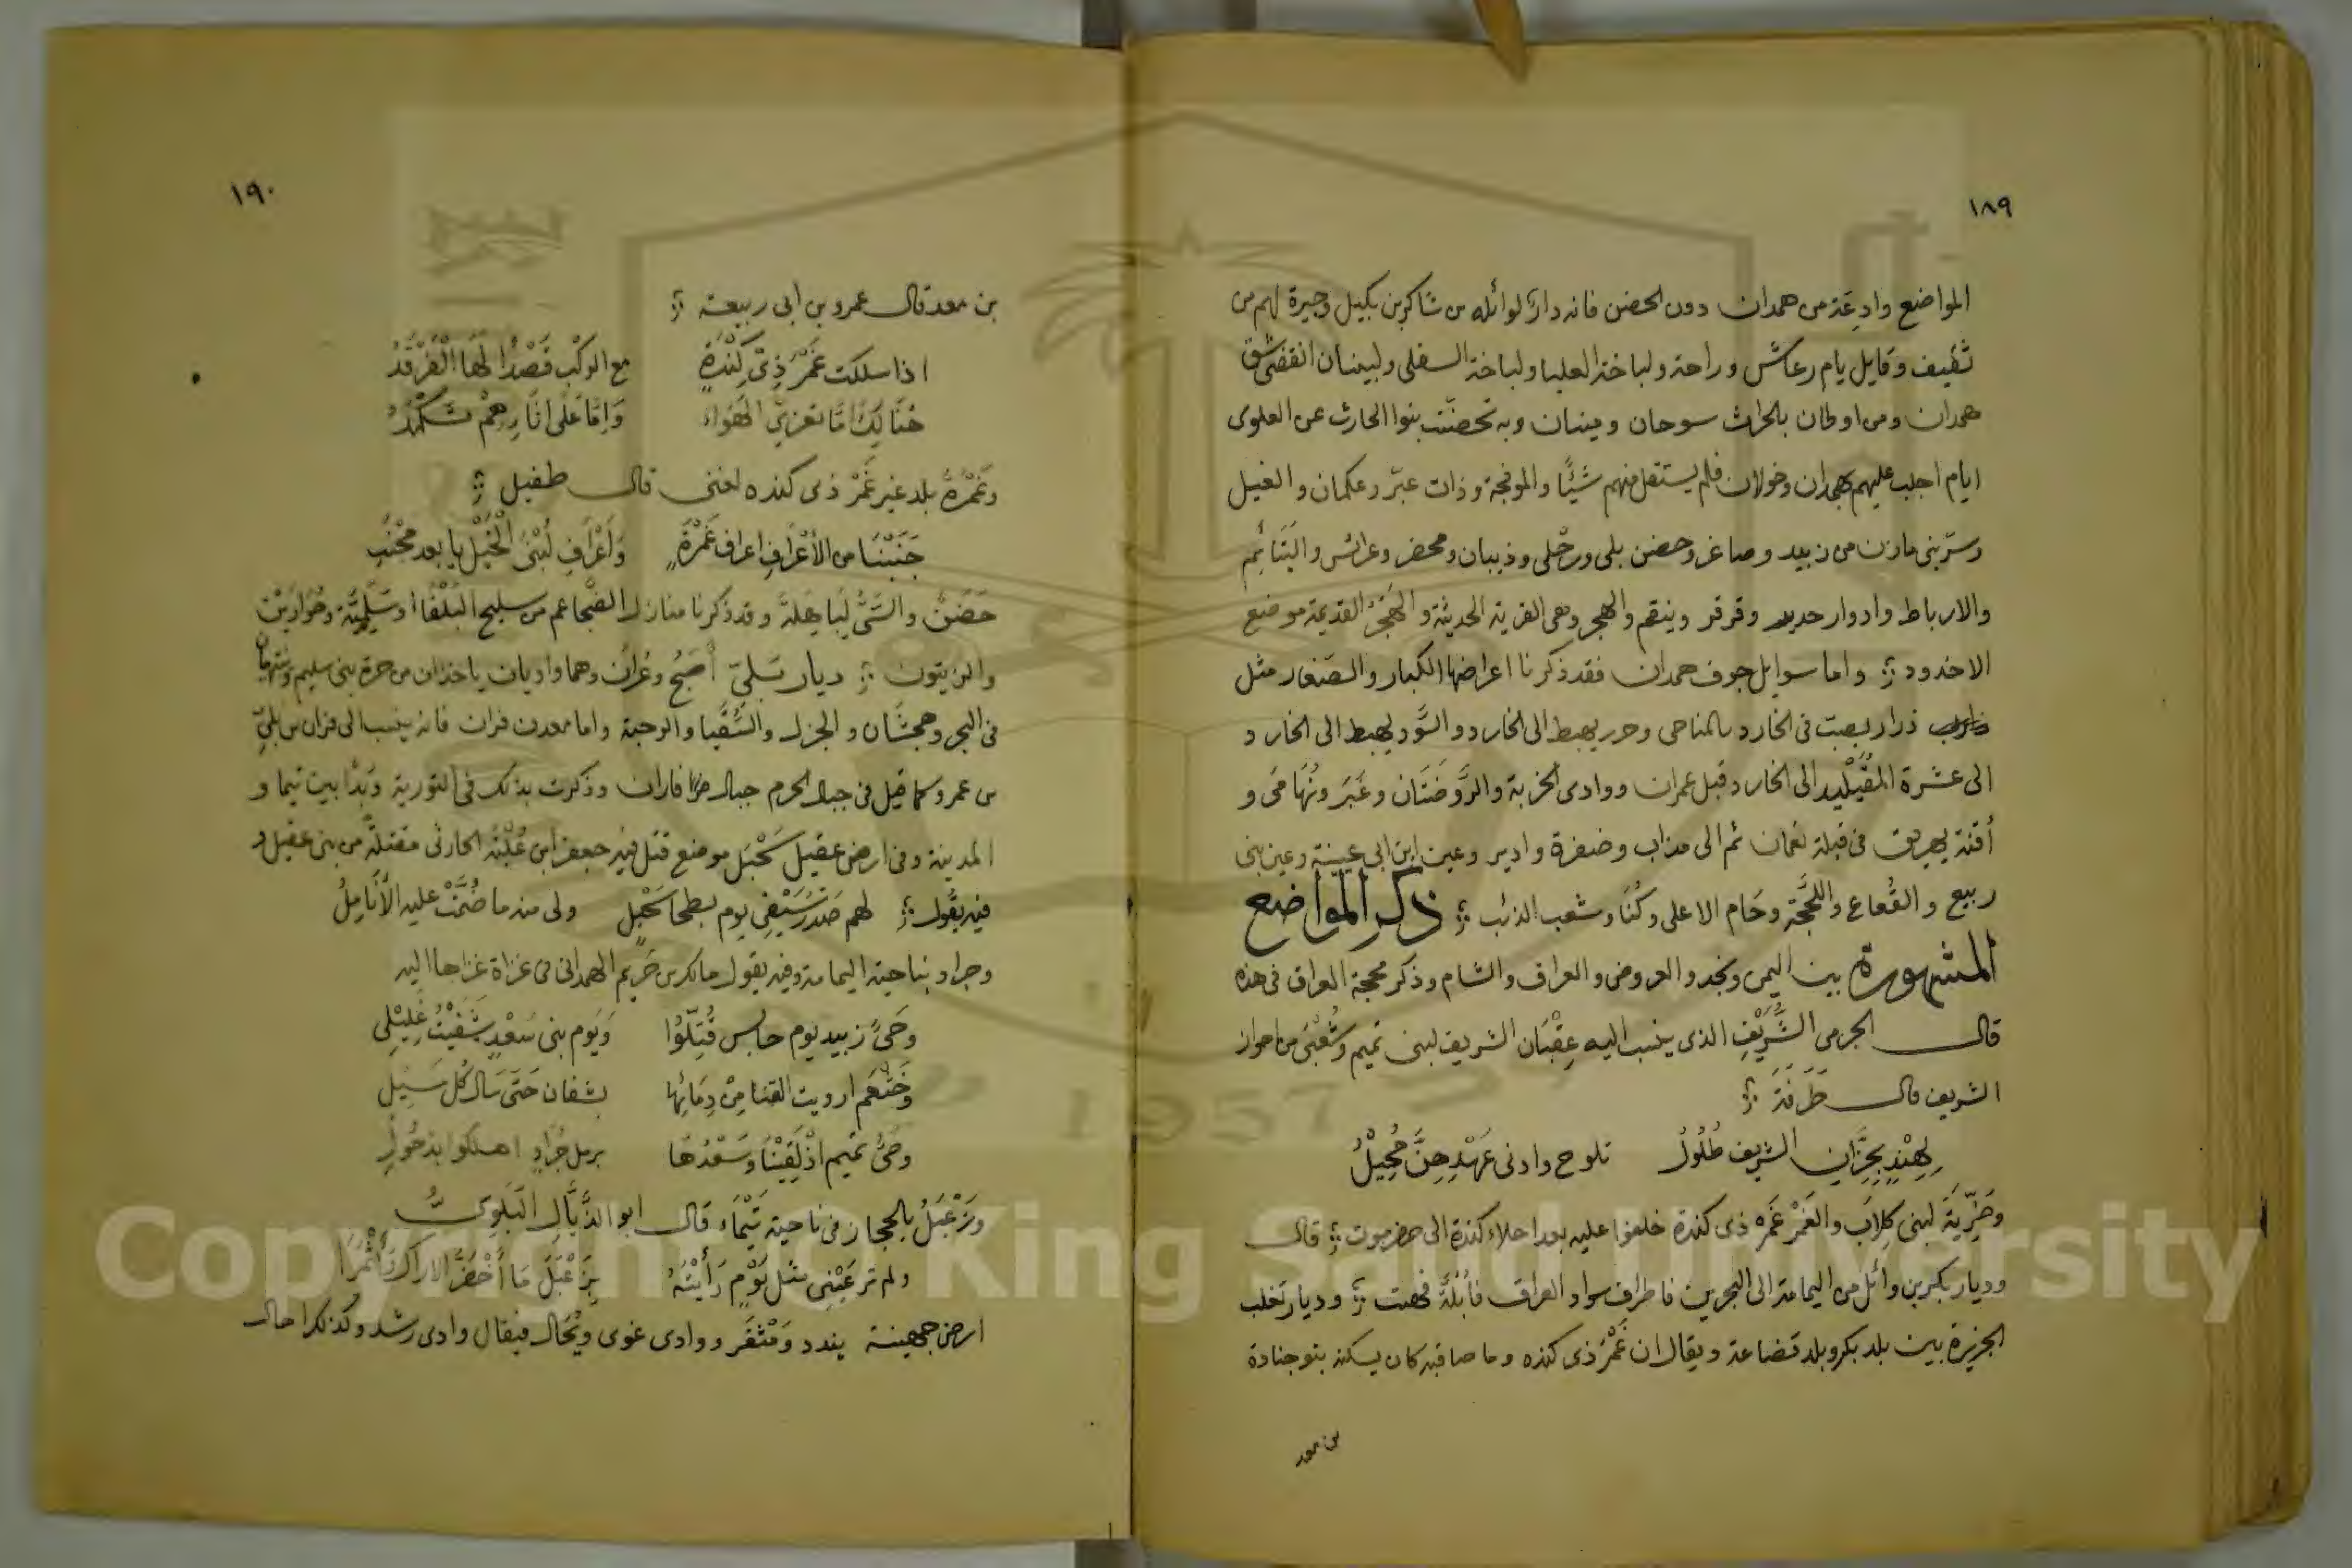 ١٨٩
المواضع وادعة من همدان دون الحضن فانه دار لوائله من شاكر بن بكيل وجيرة لهم من
ثقيف وقابل يام رعاش وراحة ولباخة العليا ولباخة السفلى ولبينان انقضى شق
همدان ومن اوطان بالحراث سوحان ومينان وبه تحضنت بنوا الحارث عن العلوى
ايام اجلب عليهم همدان وخولان فلم يستقل منهم شيئًا والموفجة وذات عبر وعكمان والغيل
وسرّ بنى مازن من زبيد وصاغر وحضن بلى ورحلى وذيبان ومحضر وعرائس واليتائم
والارباط وادوار حديد وقرقر وينقم والهجر وهى القرية الحديثة والهجر القديمة موضع
الاخدود ؛ واما سوايل جوف همدان فقد ذكرنا اعراضها الكبار والصغار مثل
ذرار يصبت فى الخارد بالمناحى وحرر يهبط الى الخارد والسَّود يهبط الى الخارد و
الى عشرة المقيليد الى الخارد قبل عمران ووادى الخربة والروضتان وغبر ونهامى و
أقنة يهريق فى قبلة نعمان ثم الى مذاب وضفرة وادير وعين ابن ابى عيينة وعين بنى
ربيع والقعاع واللجَّجة وحَام الاعلى وكُنَا وشعب الذئب ؛ ذكر المواضع
المشهورة بين اليمن ونجد والعروض والعراق والشام وذكر محجة العراق فى هذه
قال الجرمى الشُّرَيْفِ الذى ينسب اليه عِقْبَان الشريف لبنى تميم وشُعْبَى من احواز
الشريف قال طَرَفَة ؛
لِهِنْدٍ بِحِزَّانِ الشريف طُلُولُ تلوح وادنى عَهْدِهِنَّ مُحِيْلُ
وضَرِّيَة لبنى كِلاَب والغَمْر غَمْره ذى كندة خلفوا عليه بعد اجلاء كندة الى حضرموت ؛ قال
وديار بكر بن وائل من اليمامة الى البحرين فاطراف سواد العراق فأبُلّة فهيت ؛ وديار تغلب
الجزيرة بين بلد بكر وبلد قضاعة ويقال ان غَمْرَ ذى كنده وما صاقبه كان يسكنه بنو جنادة
بن معد
١٩٠
بن معد قال عمرو بن ابى ربيعة ؛
اذا سلكت غَمْرَ ذِىْ كِنْدَةٍ مع الركْب قَصْدًا لَهَا الْفَرْقَدُ
هُنَالِكَ امَّا تعزِىْ الهَوَاء وَامَّا عَلَى اثَارِهِمْ تَكْمَدُ
وغَمْرَةُ بلد غير غَمْر ذى كنده لغنى قال طفيل ؛
جَنَبْنَا من الأعْرَافِ اعراف غَمْرَةٍ وَأَعْرَافِ لُبْنَى الْخَيْلَ يا بعد مَجْنَبِ
حَضَن والسَّىُّ لِبَاهِلة وقد ذكرنا منازل الضجاعم من سليح البَلْقَا اوسَلَمِيَّة وحُوَّارَيْن
والزيتون ؛ ديار بَلِىّ أصَبُحُ وغُرَان وهما واديان ياخذان من حرة بنى سليم وينتهيان
فى البحر وهجشان والجزل والسُّقْيا والرحبة واما معدن فران فانه ينسب الى فران من بلىّ
بن عمرو كما قيل فى جبال الحرم جبال فاران وذكرت بذلك فى التورية وبَدَّا بين تيما و
المدينة وفى ارض عقيل سَحْبَل موضع قتل فيه جعفر ابن عُلْبَة الحارثى مقتلة من بنى عقيل و
فيه يقول ؛ لهم صَدْرُ سَيْفِى يوم بطحا سَحْبَل ولى منه ما ضُمَّت عليه الأَنَامِلُ
وجراد بناحية اليمامة وفيه يقول مالك بن حَرِيْم الهمدانى فى غزاة غزاها اليه
وحَىَّ زبيد يوم حابس قُتِّلُوْا وَيَوم بنى سَعْدٍ شَفَيْتُ غَلِيْلِى
وَخَثْعَم ارويت القنا مِنْ دِمَائِهَا بشفان حَتَّى سال كُل مَسِيْل
وحىُّ تميم اذْ لَقِيْنَا وَسَعْدُهَا برمل جُرَادٍ اهلكوا بذحُولِ
وزَعْبَلُ بالحجاز فى ناحية تَيْمَاء قال ابو الذَّيَّالِ البَلَوِىُّ
ولم تر عَيْنِى مثل يَوْمٍ رَأَيْتُهُ بِزَعْبَلَ مَا أخْضَرَّ الاراك وَأَثْمَرَا
ارض جهينة يندد ومَثْغَر ووادى غوى ويُحَال فيقال وادى رشد وكذلك احال